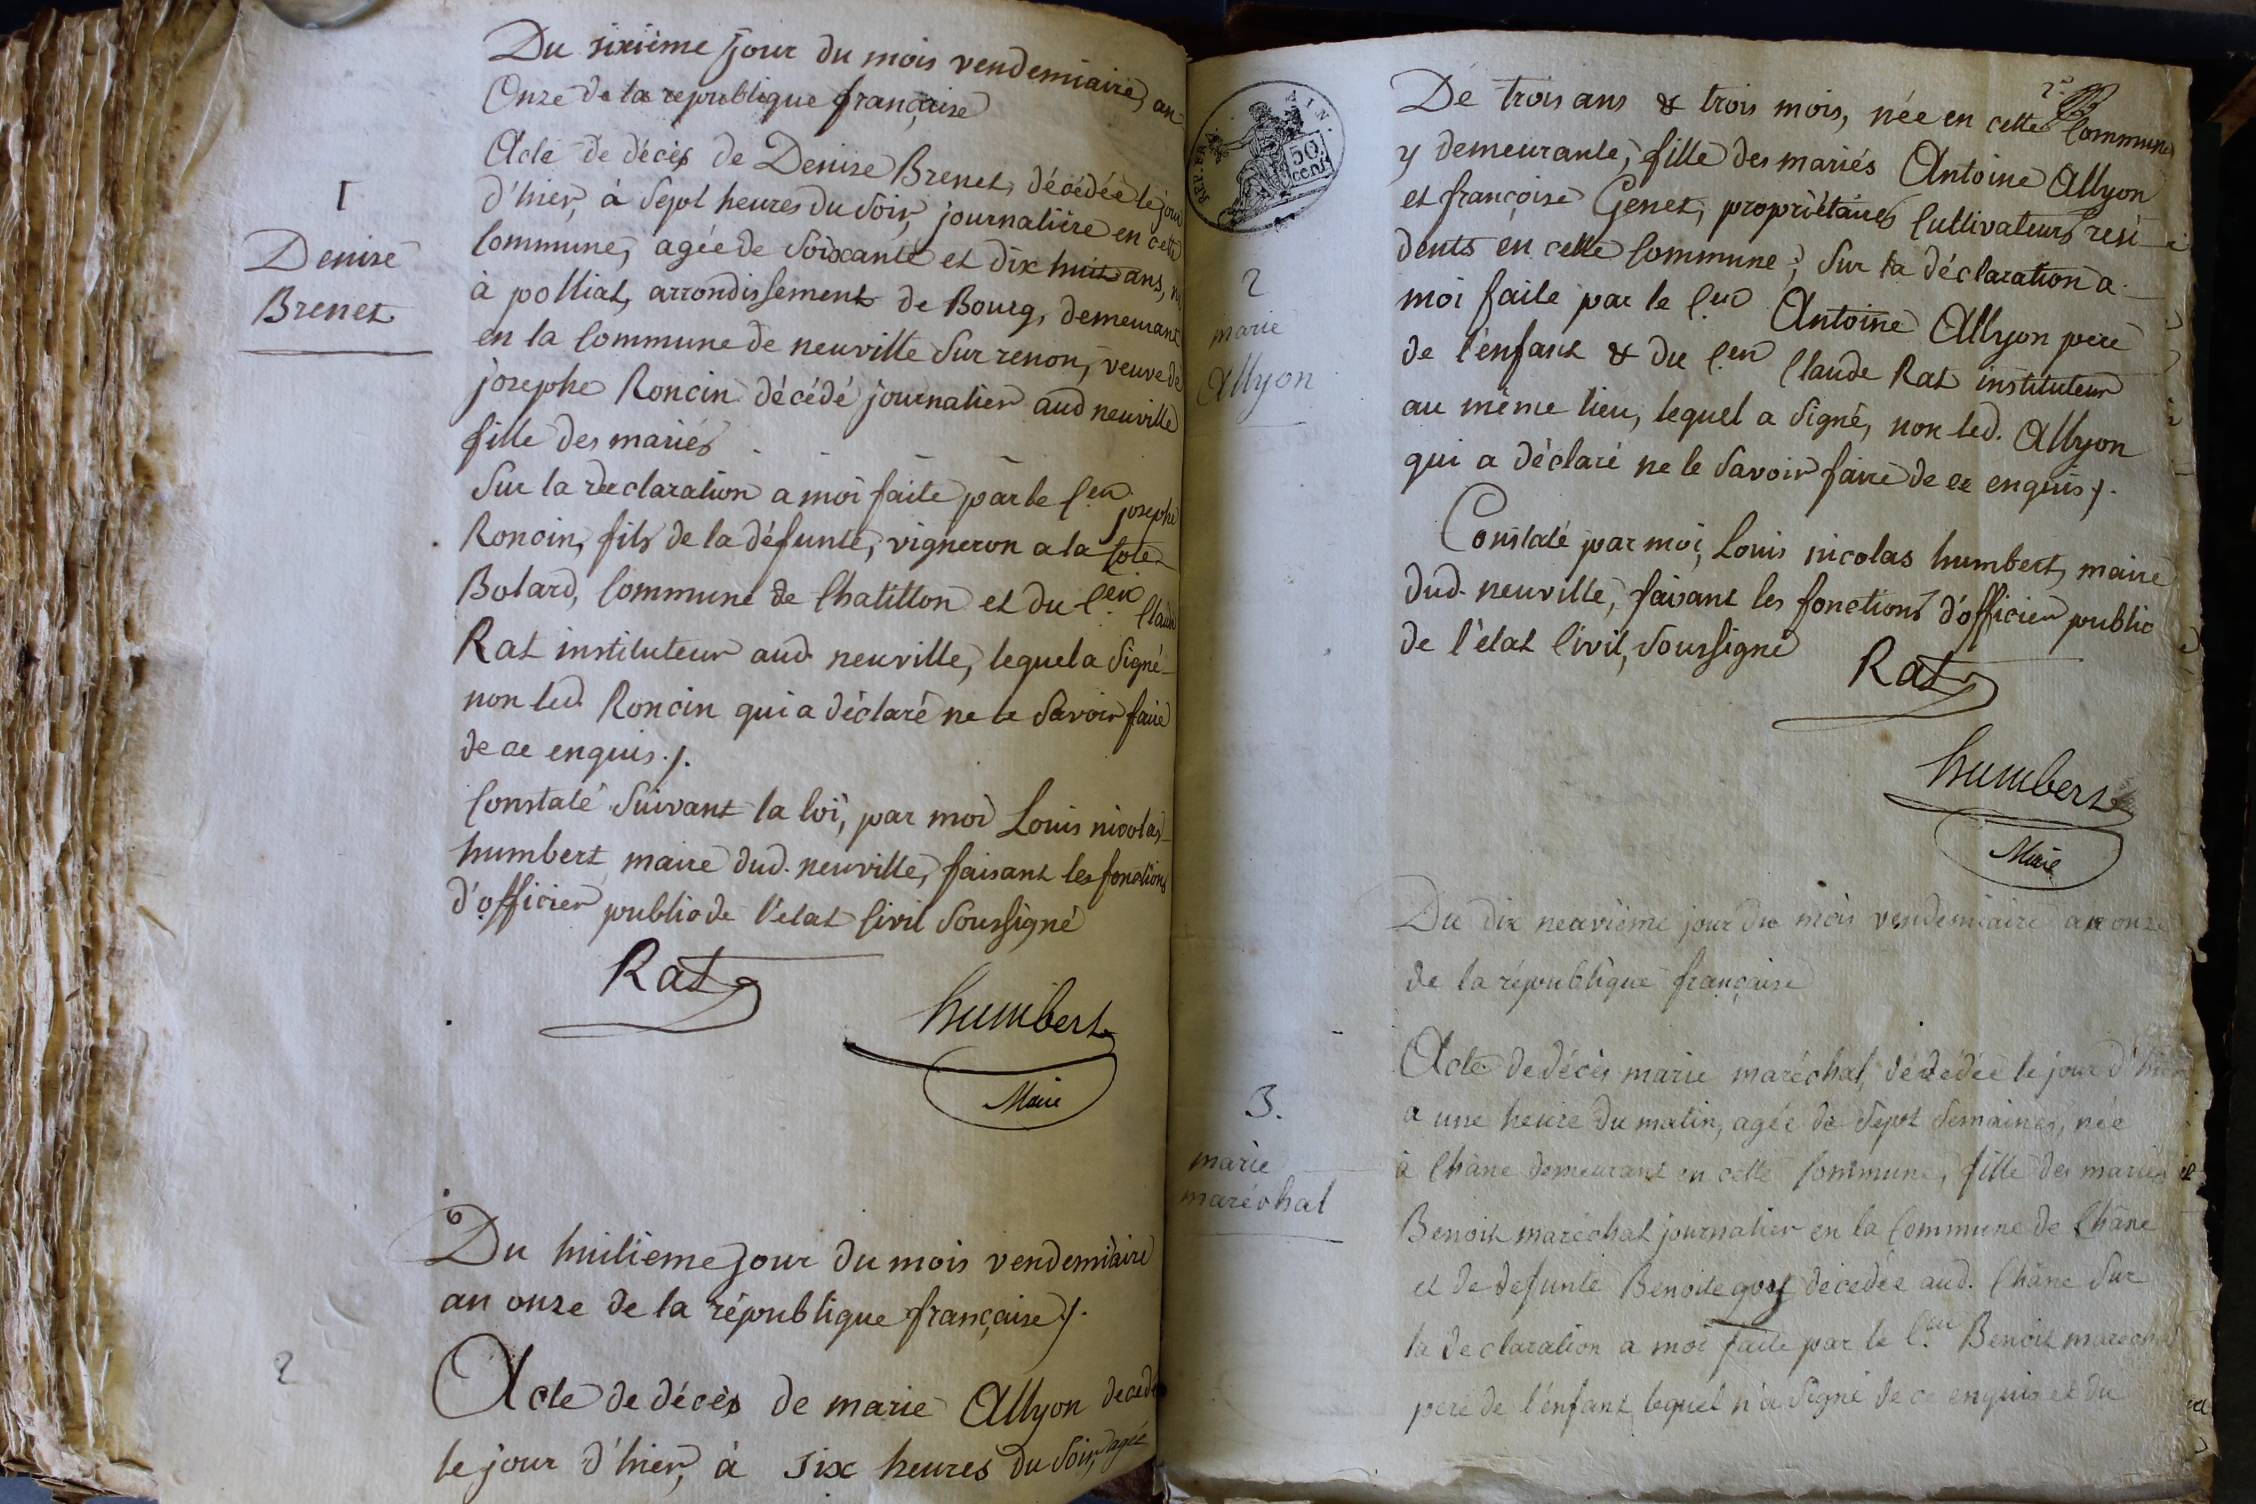 Du sixième jour du mois vendemiaire, an
Onze de la republique française
Acte de décès de Denise Brenet, décédée le jour
d'hier, à Sept heures du Soir, journalière en cette
Commune, agée de Soixante et dix huit ans,
à polliat, arrondissement de Bourg, demeurant
en la Commune de neuville Sur renon, veuve de
josephe Roncin décédé journalier aud neuville
fille des mariés
Sur la declaration a moi faite par le C.en josephe
Roncin, fils de la défunte, vigneron a la Cote
Botard, Commune de Chatillon et du C.en Claude
Rat instituteur aud. neuville, lequel a Signé
non led. Roncin qui a déclaré ne le Savoir faire
de ce enquis ./.
Constaté Suivant la loi, par moi Louis nicolas
humbert, maire dud. neuville, faisant les fonctions
d'officier public de l'état Civil Soussigné
Rat
humbert
Maire
Du huitieme jour du mois vendemiaire
an onze de la république française ./.
Acte de décès de marie Allyon decedée
le jour d'hier, à six heures du Soir, agée
1
Denise
Brenet
2
2.e
REP. FRA.
AIN.
50
cent.
De trois ans & trois mois, née en cette Commune
y demeurante, fille des mariés Antoine Allyon
et françoise Genet, propriètaires Cultivateurs resi
dents en cette Commune; Sur la déclaration a
moi faite par le C.en Antoine Allyon pere
de l'enfant & du C.en Claude Rat instituteur
au même lieu, lequel a Signé, non led. Allyon
qui a déclaré ne le Savoir faire de ce enquis ./.
Constaté par moi, Louis nicolas humbert, maire
dud. neuville, faisant les fonctions d'officier public
de l'état Civil, Soussigné
Rat
humbert
Maire
2
marie
Allyon
Du dix neuvième jour du mois vendemiaire an onze
de la république française
Acte de décès marie maréchal, décédée le jour d'hier
a une heure du matin, agée de Sept Semaines, née
à Chàne demeurant en cette Commune, fille des mariés
Benoit maréchal journalier en la Commune de Chàne
et de defunte Benoite decedée aud. Chàne Sur
la declaration a moi faite par le C.en Benoit marechal
pere de l'enfant lequel n'a Signé de ce enquis et du
3.
marie
maréchal